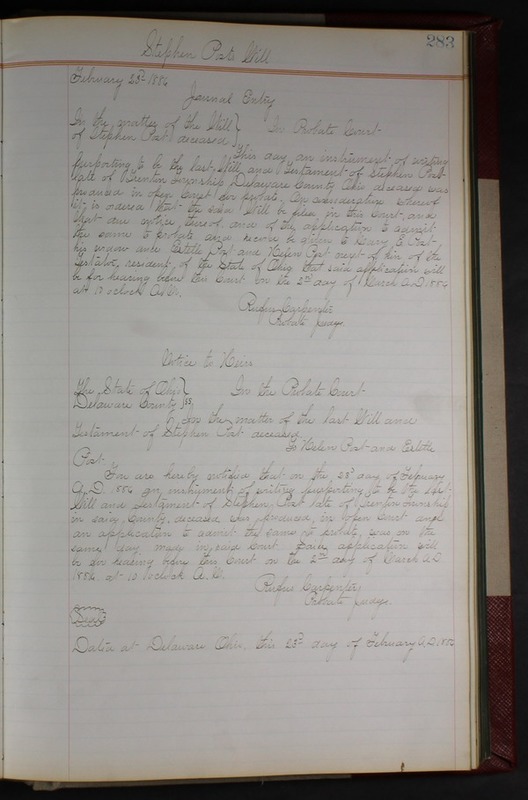 283
Stephen Post Will
February 23d 1886
Journal Entry
In the matter of the Will } In Probate Court
of Stephen Post deceased }
This day an instrument of writing
purporting to be the last Will and Testament of Stephen Post
late of Trenton Township Delaware County Ohio deceased was
produced in open Court for probate, In consideration whereof
it is ordered that the said Will be filed in this Court, and
that due notice thereof, and of the application to admit
the same to Probate and record be given to Mary E. Post
his widow and Estella Post and Helen Post next of kin of the
testator, resident, of the State of Ohio that said application will
be for hearing before this Court on the 2nd day of March A.D. 1886
at 10 oclock A.M.
Rufus Carpenter
Probate Judge
Notice to Heirs
The State of Ohio } In the Probate Court
Delaware County } SS.
In the matter of the last Will and
Testament of Stephen Post deceased
To Helen Post and Estella
Post
You are hereby notified that on the 23d day of February
A.D. 1886 an instrument of writing purporting to be the last
Will and Testament of Stephen Post late of Trenton Township
in said County, deceased was produced in open Court and
an application to admit the same to probate, was on the
same day made in said Court. Said application will
be for hearing before this Court on the 2nd day of March A.D.
1886, at 10 oclock A.M.
Rufus Carpenter
Probate Judge
Seal
Dated at Delaware Ohio, this 23d day of February A.D. 1886